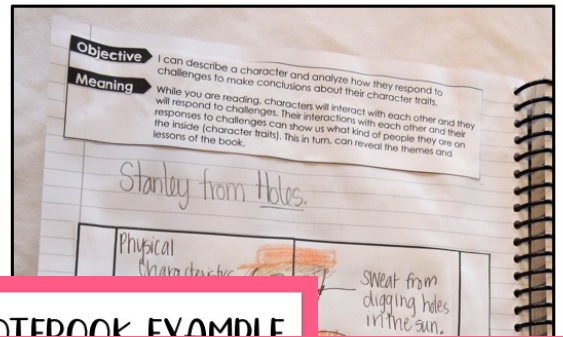 Objective
I can describe a character and analyze how they respond to
challenges to make conclusions about their character traits.
Meaning
While you are reading, characters will interact with each other and they
will respond to challenges. Their interactions with each other and their
responses to challenges can show us what kind of people they are on
the inside (character traits). This in turn, can reveal the themes and
lessons of the book.
Stanley from Holes.
Physical
Characteristics
Sweat from
digging holes
in the sun.
NOTEBOOK EXAMPLE